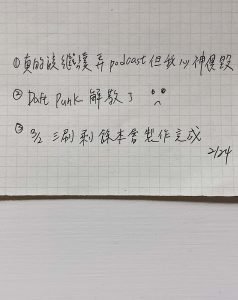 ①真的該繼續弄podcast但我心神俱毀
② Daft Punk 解散了
③ 3/2 三刷剩餘本會製作完成
2/24